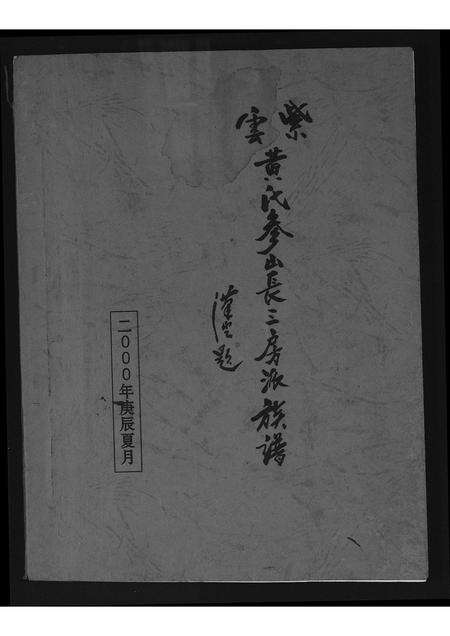 紫雲
黄氏參山長三房派族譜
漢雲题
二000年庚辰夏月